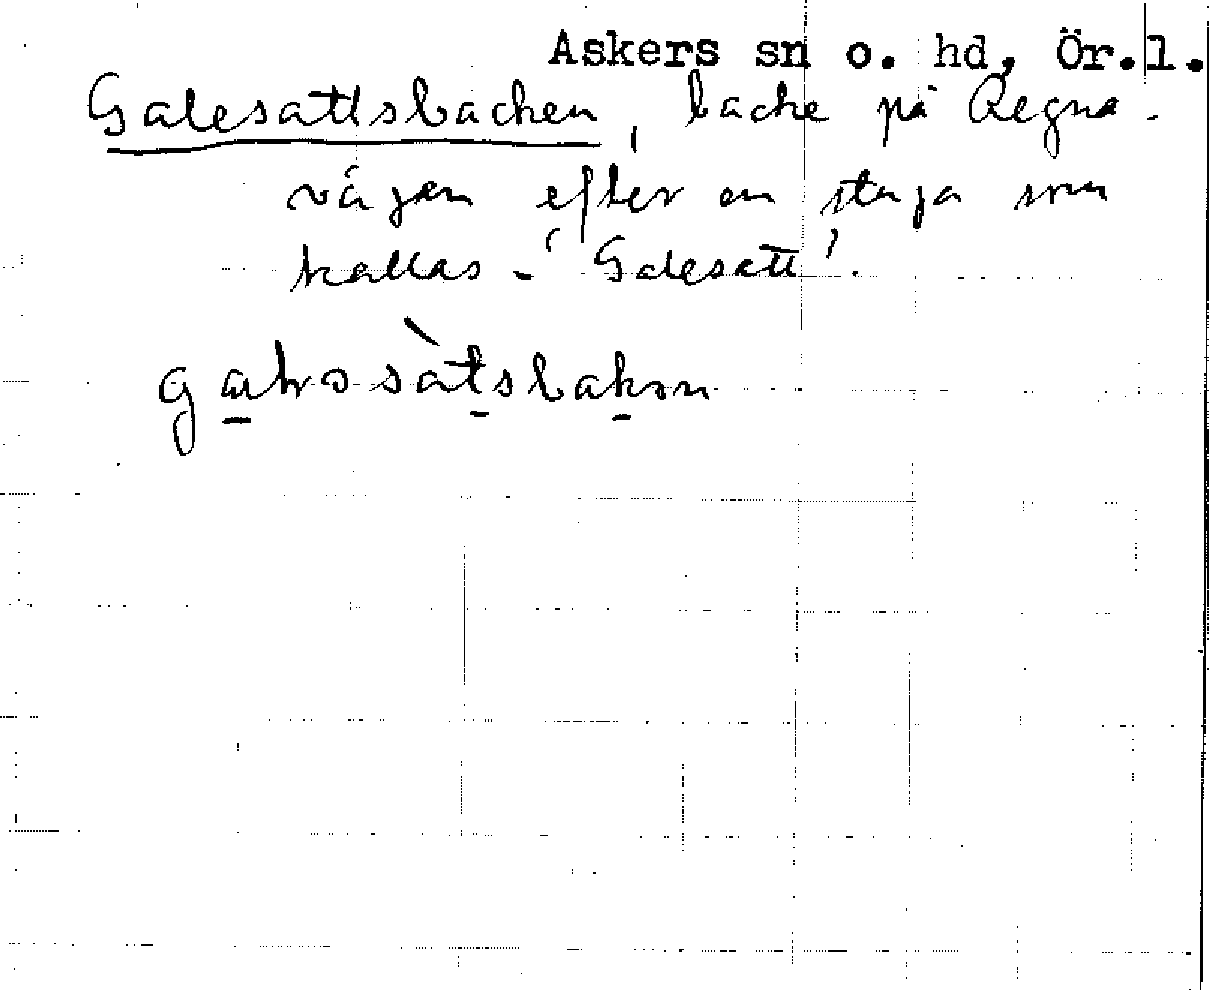 Askers sn o. hd, Ör.l.
Galesättsbacken, backe på Regna-
vägen efter en stuga som
kallas -'Galesätt'.